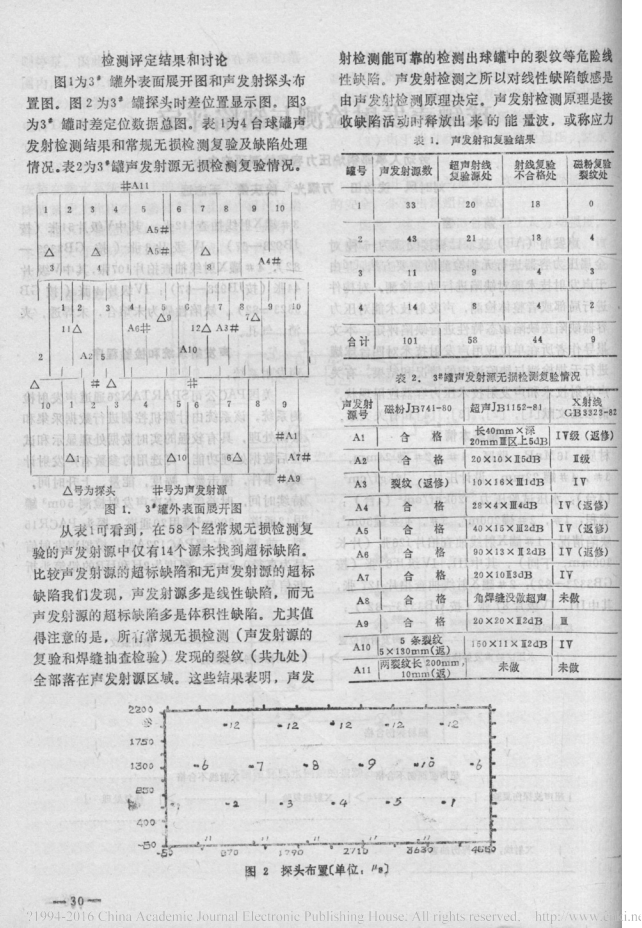 检测评定结果和讨论
图1为3# 罐外表面展开图和声发射探头布
置图。图2为3# 罐探头时差位置显示图。图3
为3# 罐时差定位数据总图。表1为4台球罐声
发射检测结果和常规无损检测复验及缺陷处理
情况。表2为3#罐声发射源无损检测复验情况。
#A11
1 2 3 4 5 6 7 8 9 10
A5#
△ △ A5# △ △
△ A4#
1 2 3 4 5 6 7 8 9 10
△9 7△
11△ A6# 12△ A3#
2 A2 5 A10 1
△ #△ △ △
10 1 2 3 4 5 6 7 8 9
#A1
△ 1△ △10 6△ #A7
#A9
△号为探头 #号为声发射源
图 1. 3#罐外表面展开图
从表1可看到，在58个经常规无损检测复
验的声发射源中仅有14个源未找到超标缺陷。
比较声发射源的超标缺陷和无声发射源的超标
缺陷我们发现，声发射源多是线性缺陷，而无
声发射源的超标缺陷多是体积性缺陷。尤其值
得注意的是，所有常规无损检测（声发射源的
复验和焊缝抽查检验）发现的裂纹（共九处）
全部落在声发射源区域。这些结果表明，声发
射检测能可靠的检测出球罐中的裂纹等危险线
性缺陷。声发射检测之所以对线性缺陷敏感是
由声发射检测原理决定。声发射检测原理是接
收缺陷活动时释放出来的能量波，或称应力
表 1. 声发射和复验结果
罐号 声发射源数 超声射线复验源处 射线复验不合格处 磁粉复验裂纹处
1 33 20 18 0
2 43 21 18 4
3 11 9 4 3
4 14 8 4 2
合计 101 58 44 9
表 2. 3#罐声发射源无损检测复验情况
声发射源号 磁粉JB741-80 超声JB1152-81 X射线GB3323-82
A1 合格 长40mm×深20mmⅡ区上5dB Ⅳ级（返修）
A2 合格 20×10×Ⅱ5dB Ⅱ级
A3 裂纹（返修） 10×16×Ⅲ1dB Ⅳ
A4 合格 28×4×Ⅲ4dB Ⅳ（返修）
A5 合格 40×15×Ⅲ2dB Ⅳ（返修）
A6 合格 90×13×Ⅱ2dB Ⅳ（返修）
A7 合格 20×10Ⅱ3dB Ⅳ
A8 合格 角焊缝没做超声 未做
A9 合格 20×20×Ⅱ2dB Ⅲ
A10 5条裂纹5×130mm(返) 150×11×Ⅱ2dB Ⅳ
A11 两裂纹长200mm，10mm(返) 未做 未做
2200
-12 -12 -12 -12 -12
1750
1300 -6 -7 -8 -9 -10 -6
850
-2 -3 -4 -5 -1
400
-50 11 11 11 11 11
-50 870 1790 2710 3630 4650
图 2 探头布置〔单位，μs〕
—30—
?1994-2016 China Academic Journal Electronic Publishing House. All rights reserved. http://www.cnki.ne